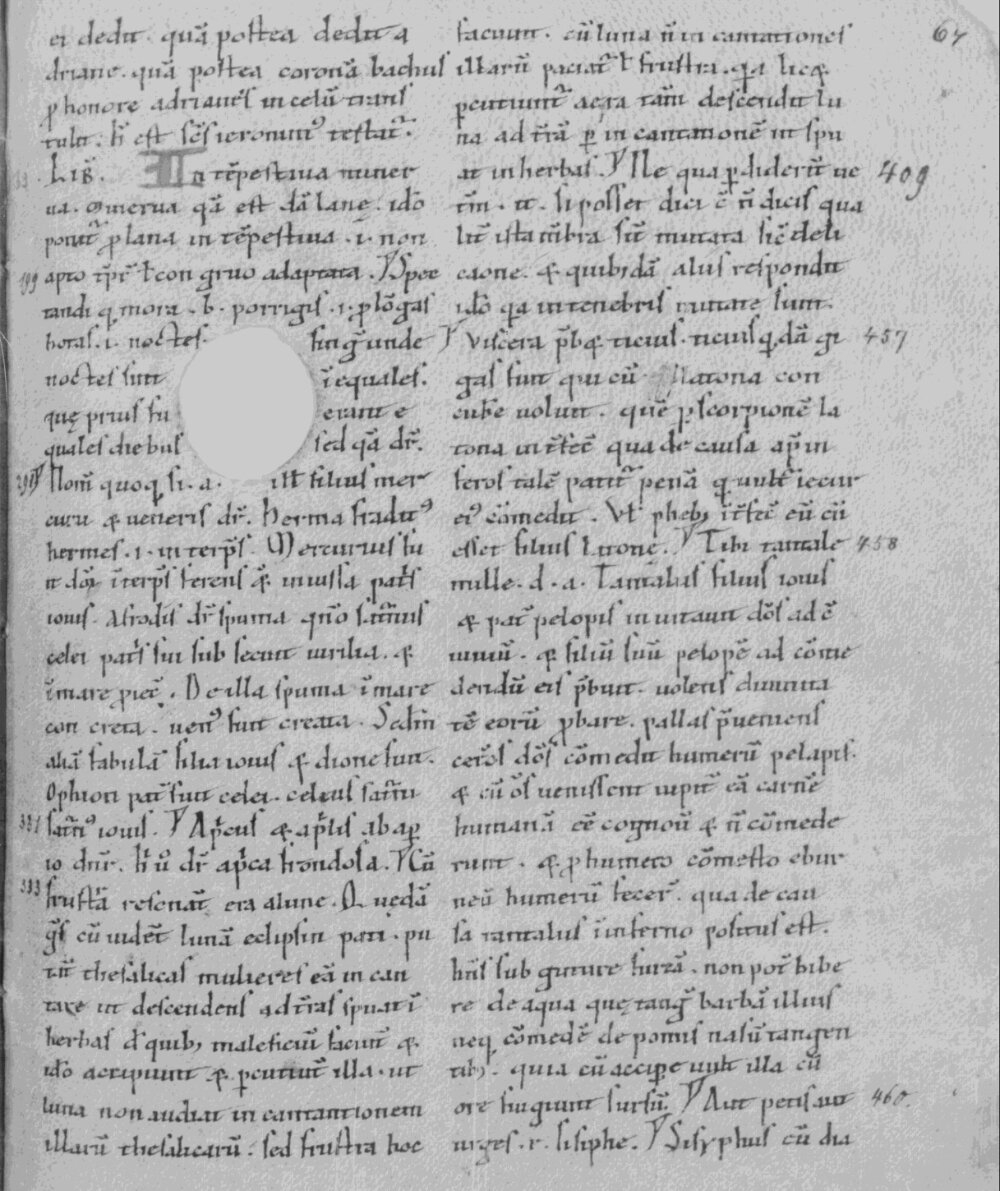 ei dedit. quā postea dedit a
driane. quā postea coronā bachus
ꝓ honore adrianes in celū trans
tulit. h̄ est sc̄s ieronim᷒ testat᷑.
Lib̄. III In tēpestiua miner
ua. Minerua qā est dā lane. idō
ponit᷑ ꝓ lana in tēpestiua .i. non
199 apto tp̄r̄ ł con gruo adaptata. Spec
tandi q; mora. b. porrigis .i. ꝓlōgas
horas .i. noctes. sinḡ unde
noctes sunt īequales.
quę prius fu erant e
quales diebus sed qā dr̄.
291 Nom̄ quoq; si. a. ill̄ filius mer
curii & ueneris dr̄. herma fradit᷒
hermes .i. in terp̄s. Mercurius fu
it dō᷑ īterp̄s ferens & in iussa pat̄s
iouis. Afrodis dr̄ spuma qn̄o sat̄nus
celei pat̄s sui sub secuit uirilia. &
ī mare ꝓiec̄. De illa spuma ī mare
con creta. uen᷒ fuit creata. Sedm̄
aliā fabulā filia iouis & dione fuit.
Ophion pat̄ fuit celei. celeus sat̄ni
331 sat̄n᷒ iouis. Ap̄cus & ap̄lis ab aꝑ
io dnr̄. h̄ u̇ dr̄ ap̄ca frondosa. Cū
333 frust̄a resonat̄ era alune. Quedā
g̅s cū uidēt lunā eclipsin pati. pu
tāt thesalicas mulieres eā in can
taxe ut descendens ad t̄ras spuat ī
herbas d̄ quib; maleficiū faciūt &
idō accipiunt & ꝑcutiunt illa. ut
luna non audiat in cantantionem
illarū thesalicarū. sed frustra hoc
64
faciunt. cū luna n̄ in cantationes
illarū paciat᷑ ł frustra. qa lic&
ꝑcutiunt᷑ aera tam̄ descendit lu
na ad t̄rā ꝑ in cantationē ut spu
at in herbas. Ne qua ꝑ diderīt ue 409
tm̄. it. si posset dici ē n̄ dicis qua
lit̄ ista mēbra sīt mutata sic̄ deli
caone. & quibidā alus respondit
idō qa in tenebris mutate sunt.
Viscera p̄b& ticius. ticius q;dā gi 457
gas fuit qui cū Latona con
cūbe uoluit. quē ꝑ scorpionē la
tona int̄fec̄ qua de causa ap̄ in
feros talē patit᷑ penā q; uult᷑ iecur
ei᷒ cōmedit. Vł pheb; īt̄fec̄ eū cū
esset filius Litonę. Tibi tantale 458
nulle. d. a. Tantalus filius iouis
& pat̄ pelopis in uitauit dōs ad c̄
uiuiū. & filiū suū pelopē ad cōme
dendū eis p̄buit. uolens diuinita
tē eorū ꝓbare. pallas p̄ueniens
cet̄os dōs cōmedit humerū pelapis.
& cū ōs uenissent uipit̄ eā carnē
humanā ē͞e cognoū & n̄ cōmede
runt. & ꝓ humero cōmesto ebur
neū humerū fecer̄. qua de cau
sa tantalus ī inferno positus est.
hn̄s sub guture furzā. non pot̄ bibe
re de aqua quę tang̅ barbā illius
neq; cōmedē de pomis nasū tangen
tib;. quia cū acciꝑe uult illa cū
ore fugiunt sursū. Aut petis aut 460.
urges. r. sisiphe. Sisyphus cū dia